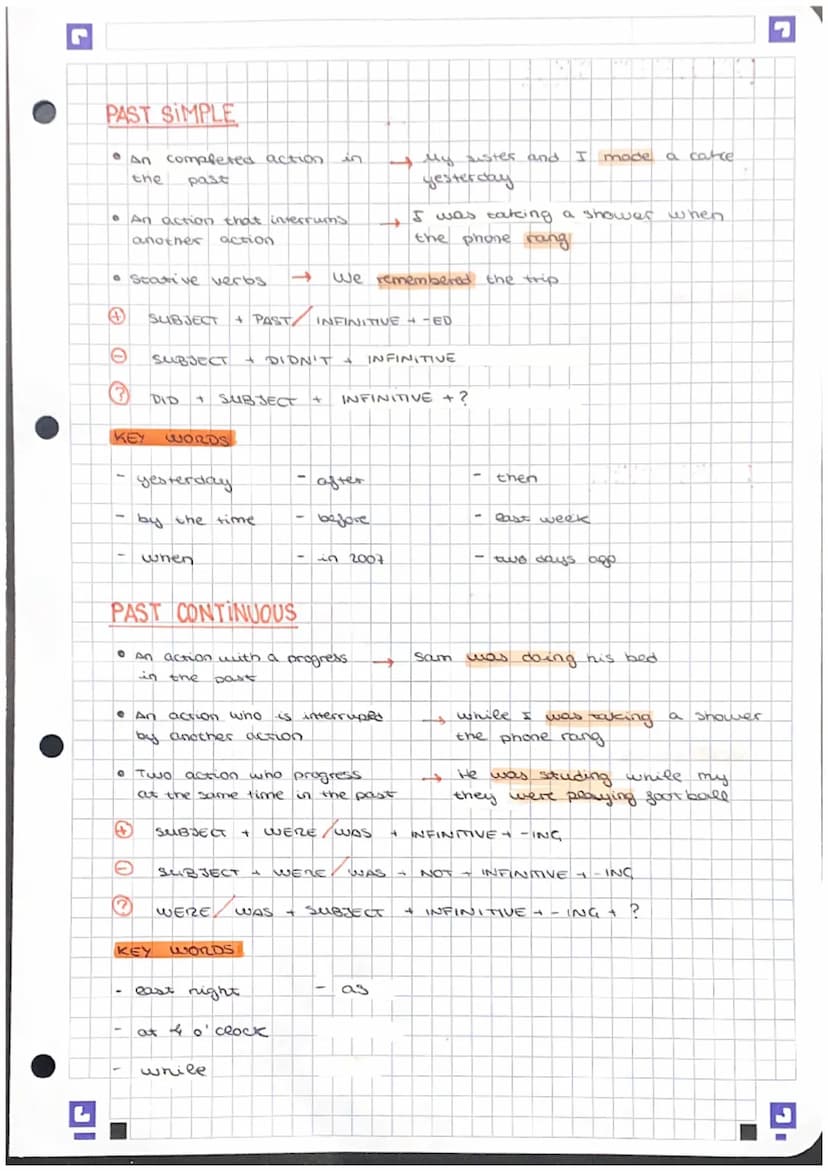 PAST SIMPLE
• An completed action in → My sister and I made a cake
the past yesterday
• An action that interrums → I was taking a shower when
another action the phone rang
• Stative verbs → We remembered the trip
+ SUBJECT + PAST / INFINITIVE + -ED
- SUBJECT + DIDN'T + INFINITIVE
? DID + SUBJECT + INFINITIVE + ?
KEY WORDS
- yesterday - after - then
- by the time - before - last week
- when - in 2007 - two days ago
PAST CONTINUOUS
• An action with a progress → Sam was doing his bed
in the past
• An action who is interrupted → while I was taking a shower
by another action the phone rang
• Two action who progress → He was studing while my
at the same time in the past they were playing football
+ SUBJECT + WERE / WAS + INFINITIVE + -ING
- SUBJECT + WERE / WAS + NOT + INFINITIVE + -ING
? WERE / WAS + SUBJECT + INFINITIVE + -ING + ?
KEY WORDS
- last night - as
- at 4 o'clock
- while